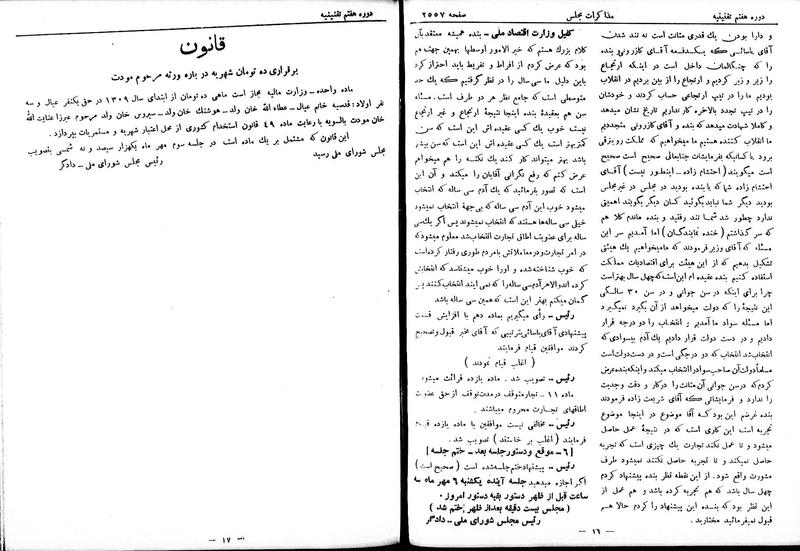 دوره هفتم تقنینیه
مذاکرات مجلس
صفحه ۲۵۵۷
و دارا بودن یك قدری متانت است نه تند شدن
آقای یاسائی که یکدفعه آقای کازرونی و بنده
را که چنگالمان داخل است در اینکه ارتجاع
را زیر و زبر کردیم و ارتجاع را از بین بردیم در انقلاب
بودیم ما را در تیپ ارتجاعی حساب کردند و خودشان
را در تیپ تجدد بالاخره کار نداریم تاریخ نشان میدهد
و کاملا شهادت میدهد که بنده و آقای کازرونی متجددیم
ما انقلاب کننده هستیم ما میخواهیم که مملکت رو بترقی
برود با کسانیکه بفرمایشات جنابعالی صحیح است صحیح
است میگویند ( احتشام زاده ـ اینطور نیست ) آقـای
احتشام زاده شما که با بنده بودید در مجلس در غیر مجلس
بودید دیگر شما نباید بگوئید کسان دیگر بگویند اهمیتی
ندارد چطور شد شما تند رفتید و بنده ماندم کلا هم
که سر گذاشتم ( خنده نمایندگان ) اما آمدیم سر این
مسئله که آقای وزیر فرمودند که ما میخواهیم یك هیئتی
تشکیل بدهیم که از این هیئت برای اقتصادیات مملکت
استفاده کنیم بنده عقیده ام این است که چهل سال بهتر است
چرا برای اینکه در سن جوانی و در سن ۳۰ سالـگی
این نتیجهٔ را که دولت میخواهد از آن بگیرد نمیگیرد
اما مسئله سواد ما آمدیم و انتخاب را دو درجه قرار
دادیم و در دست دولت قرار دادیم یك آدم بیسوادی که
انتخاب شد انتخاب که دو درجگی است و در دست دولت است
مسلماً دولت آن صاحب سواد را انتخاب میکند و اینکه بنده عرض
کردم که در سن جوانی آن متانت را در کار و دقت وجدیت
را ندارد و فرمایشاتی که آقای شریعت زاده فرمودند
بنده غرضم این بود کـه آقا موضوع در اینجا موضوع
تجربه است این کاری است که در نتیجهٔ عمل حاصل
میشود و تا عمل نکند تجارت یك چیزی است که تجربه
حاصل نمیکند و تا تجربه حاصل نکنند نمیشود طرف
مشورت واقع شود . از این نقطه نظر بنده پیشنهاد کردم
چهل سال باشد که هم تجربه کرده باشد و هم عمل از
این نظر بود که بنـده این پیشنهاد را کردم حالا هـم
قبول نمیفرمائید مختارید .
کفیل وزارت اقتصاد ملی ـ بنده همیشه معتقد باین
کلام بزرگ هستم که خیر الامور اوسطها بهمین جهت هم
بود که عرض کردم از افراط و تفریط باید احتراز کرد
باین دلیل ما سی سال را در نظر گرفتیم که یك حد
متوسطی است که جامع نظر هر دو طرف است . مسئله
سن هم بعقیدهٔ بنده اینجا نتیجهٔ ارتجاع و غیر ارتجاع
نیست خوب یك کسی عقیده اش این است که سن
کمتر بهتر است یك کسی عقیده اش این است که سن بیشتر
باشد بهتر میتواند کار کند یك نکتـه را هم میخواهم
عرض کنم که رفع نگرانی آقایان را میکند و آن این
است که تصور بفرمائید که یك آدم سی ساله که انتخاب
میشود خوب این آدم سی ساله که بی جهة انتخاب نمیشود
خیلی سی ساله ها هستند که انتخاب نمیشوند پس اگر یك سی
ساله برای عضویت اطاق تجارت انتخاب شد معلوم میشود که
در امر تجارت و در معاملاتش با مردم طوری رفتار کرده است
که خوب شناخته شده و اورا خوب میشناسد که انتخابش
کرده اند والا هر آدم سی ساله را که نمی آیند انتخاب کنند پس
گمان میکنم بهتر این است که همین سی ساله باشد
رئیس ـ رأی میگیریم بماده دهم با افزایش قسمت
پیشنهادی آقای یاسائی بترتیبی که آقای مخبر قبول و تصحیح
کردند موافقین قیام فرمایند
( اغلب قیام نمودند )
رئیس ـ تصویب شد . ماده یازده قرائت میشود
ماده ۱۱ ـ تجار متوقف در مدت توقف از حق عضویت
اطاقهای تجـارت محروم میباشند .
رئیس ـ مخالفی نیست موافقین با ماده یازده قیام
فرمایند ( اغلب بر خاستند ) تصویب شد .
[ ۶ ـ موقع و دستور جلسه بعد ـ ختم جلسه ]
رئیس ـ پیشنهاد ختم جلسه شده است ( صحیح است )
اگر اجازه میدهید جلسه آینده یکشنبه ۶ مهر ماه سه
ساعت قبل از ظهر دستور بقیه دستور امروز .
( مجلس بیست دقیقه بعد از ظهر ختم شد )
رئیس مجلس شورای ملی ـ دادگر
ـ ۱۶ ـ
دوره هفتم تقنینیه
قانون
برقراری ده تومان شهریه در باره ورثه مرحوم مودت
ماده واحده ـ وزارت مالیه مجاز است ماهی ده تومان از ابتدای سال ۱۳۰۹ در حق یکنفر عیال و سه
نفر اولاد : قدسیه خانم عیال ـ عطاء الله خان ولد ـ هوشنك خان ولد ـ سیروس خان ولد مرحوم میرزا عنایت الله
خان مودت بالسویه با رعایت ماده ۴۹ قانون استخدام کشوری از محل اعتبار شهریه و مستمریات بپردازد .
این قانون که مشتمل بر یك ماده است در جلسه سوم مهر ماه یکهزار سیصد و نه شمسی بتصویب
مجلس شورای ملی رسید
رئیس مجلس شورای ملی ـ دادگر
ـ ۱۷ ـ